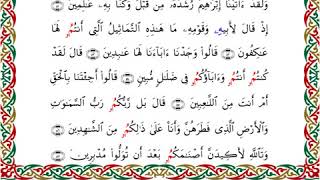 وَلَقَدْ ءَاتَيْنَآ إِبْرَٰهِيمَ رُشْدَهُۥ مِن قَبْلُ وَكُنَّا بِهِۦ عَٰلِمِينَ
إِذْ قَالَ لِأَبِيهِ وَقَوْمِهِۦ مَا هَٰذِهِ ٱلتَّمَاثِيلُ ٱلَّتِىٓ أَنتُمُۥ لَهَا
عَٰكِفُونَ قَالُوا۟ وَجَدْنَآ ءَابَآءَنَا لَهَا عَٰبِدِينَ قَالَ لَقَدْ
كُنتُمُۥ أَنتُمُۥ وَءَابَآؤُكُمُۥ فِى ضَلَٰلٍ مُّبِينٍ قَالُوٓا۟ أَجِئْتَنَا بِٱلْحَقِّ
أَمْ أَنتَ مِنَ ٱللَّٰعِبِينَ قَالَ بَل رَّبُّكُمُۥ رَبُّ ٱلسَّمَٰوَٰتِ
وَٱلْأَرْضِ ٱلَّذِى فَطَرَهُنَّ وَأَنَا۠ عَلَىٰ ذَٰلِكُمُۥ مِنَ ٱلشَّٰهِدِينَ
وَتَٱللَّهِ لَأَكِيدَنَّ أَصْنَٰمَكُمُۥ بَعْدَ أَن تُوَلُّوا۟ مُدْبِرِينَ